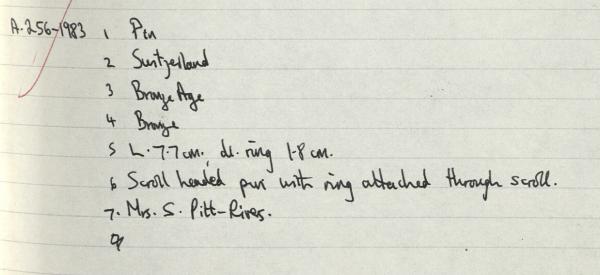 A.256-1983 1 Pin
2 Switzerland
3 Bronze Age
4 Bronze
5 L. 7.7 cm. d. ring 1.8 cm.
6 Scroll headed pin with ring attached through scroll.
7. Mrs. S. Pitt-Rivers.